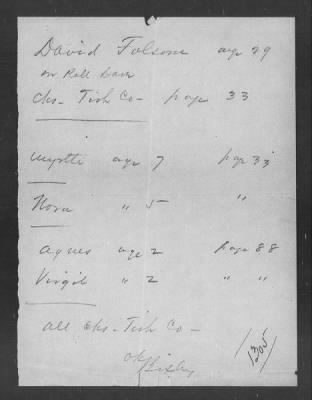 David Folsom age 29
on Roll Dave
Cks - Tish Co - page 33
Myrtle age 7 page 33
Nora " 5 "
Agnes age 2 page 88
Virgil " 2 " "
all Cks - Tish Co -
OK
Bixby
1305